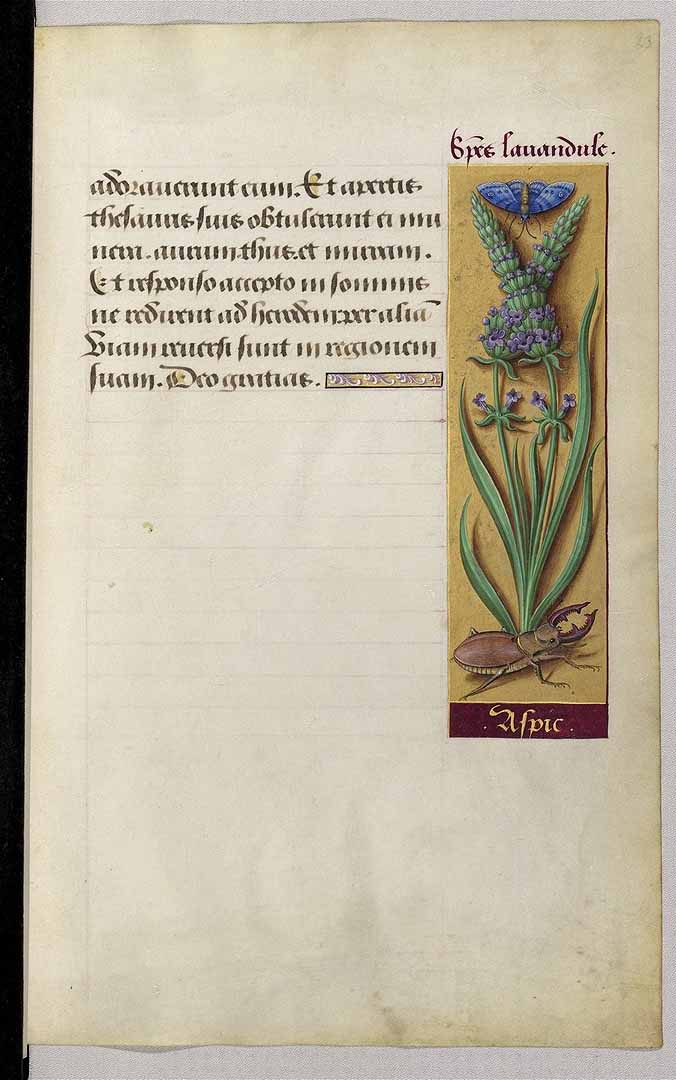 23
Spēs lauandule.
adorauerunt eum. Et apertis
thesauris suis obtulerunt ei mu
nera. aurum thus et mirram.
Et responso accepto in somnis
ne redirent ad herodem per aliā
Viam reuersi sunt in regionem
suam. Deo gratias.
. Aspic .